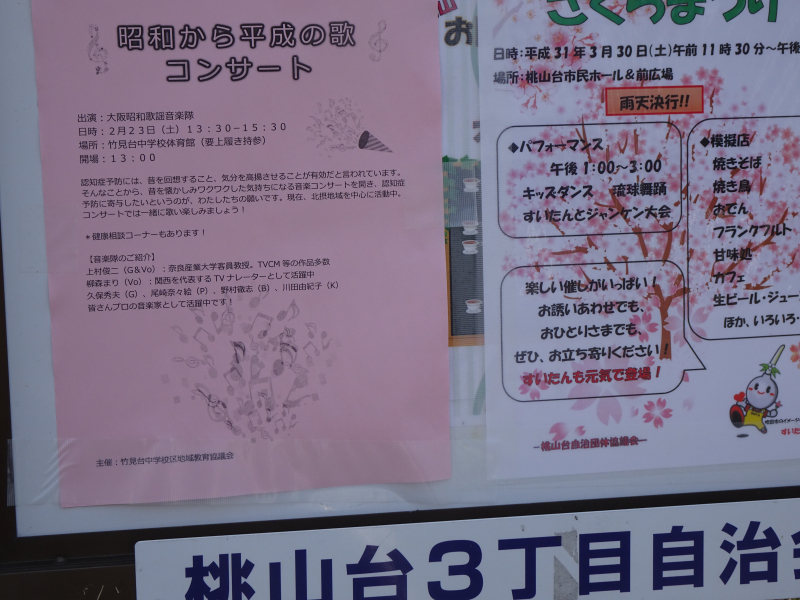 昭和から平成の歌
コンサート
出演：大阪昭和歌謡音楽隊
日時：２月２３日（土）１３：３０−１５：３０
場所：竹見台中学校体育館（要上履き持参）
開場：１３：００
認知症予防には、昔を回想すること、気分を高揚させることが有効だと言われています。
そんなことから、昔を懐かしみワクワクした気持ちになる音楽コンサートを開き、認知症
予防に寄与したいというのが、わたしたちの願いです。現在、北摂地域を中心に活動中。
コンサートでは一緒に歌い楽しみましょう！
＊健康相談コーナーもあります！
【音楽隊のご紹介】
上村俊二（G＆Vo）：奈良産業大学客員教授。TVCM 等の作品多数
柳森まり（Vo）：関西を代表する TV ナレーターとして活躍中
久保秀夫（G）、尾崎奈々絵（P）、野村徹志（B）、川田由紀子（K）
皆さんプロの音楽家として活躍中です！
主催：竹見台中学校区地域教育協議会
さくらまつり
日時：平成 31 年 3 月 30 日（土）午前 11 時 30 分～午後
場所：桃山台市民ホール＆前広場
雨天決行!!
◆パフォーマンス
午後 1：00～3：00
キッズダンス 琉球舞踊
すいたんとジャンケン大会
◆模擬店
焼きそば
焼き鳥
おでん
フランクフルト
甘味処
カフェ
生ビール・ジュー
ほか、いろいろ・
楽しい催しがいっぱい！
お誘いあわせでも、
おひとりさまでも、
ぜひ、お立ち寄りください！
すいたんも元気で登場！
－桃山台自治団体協議会－
桃山台３丁目自治会